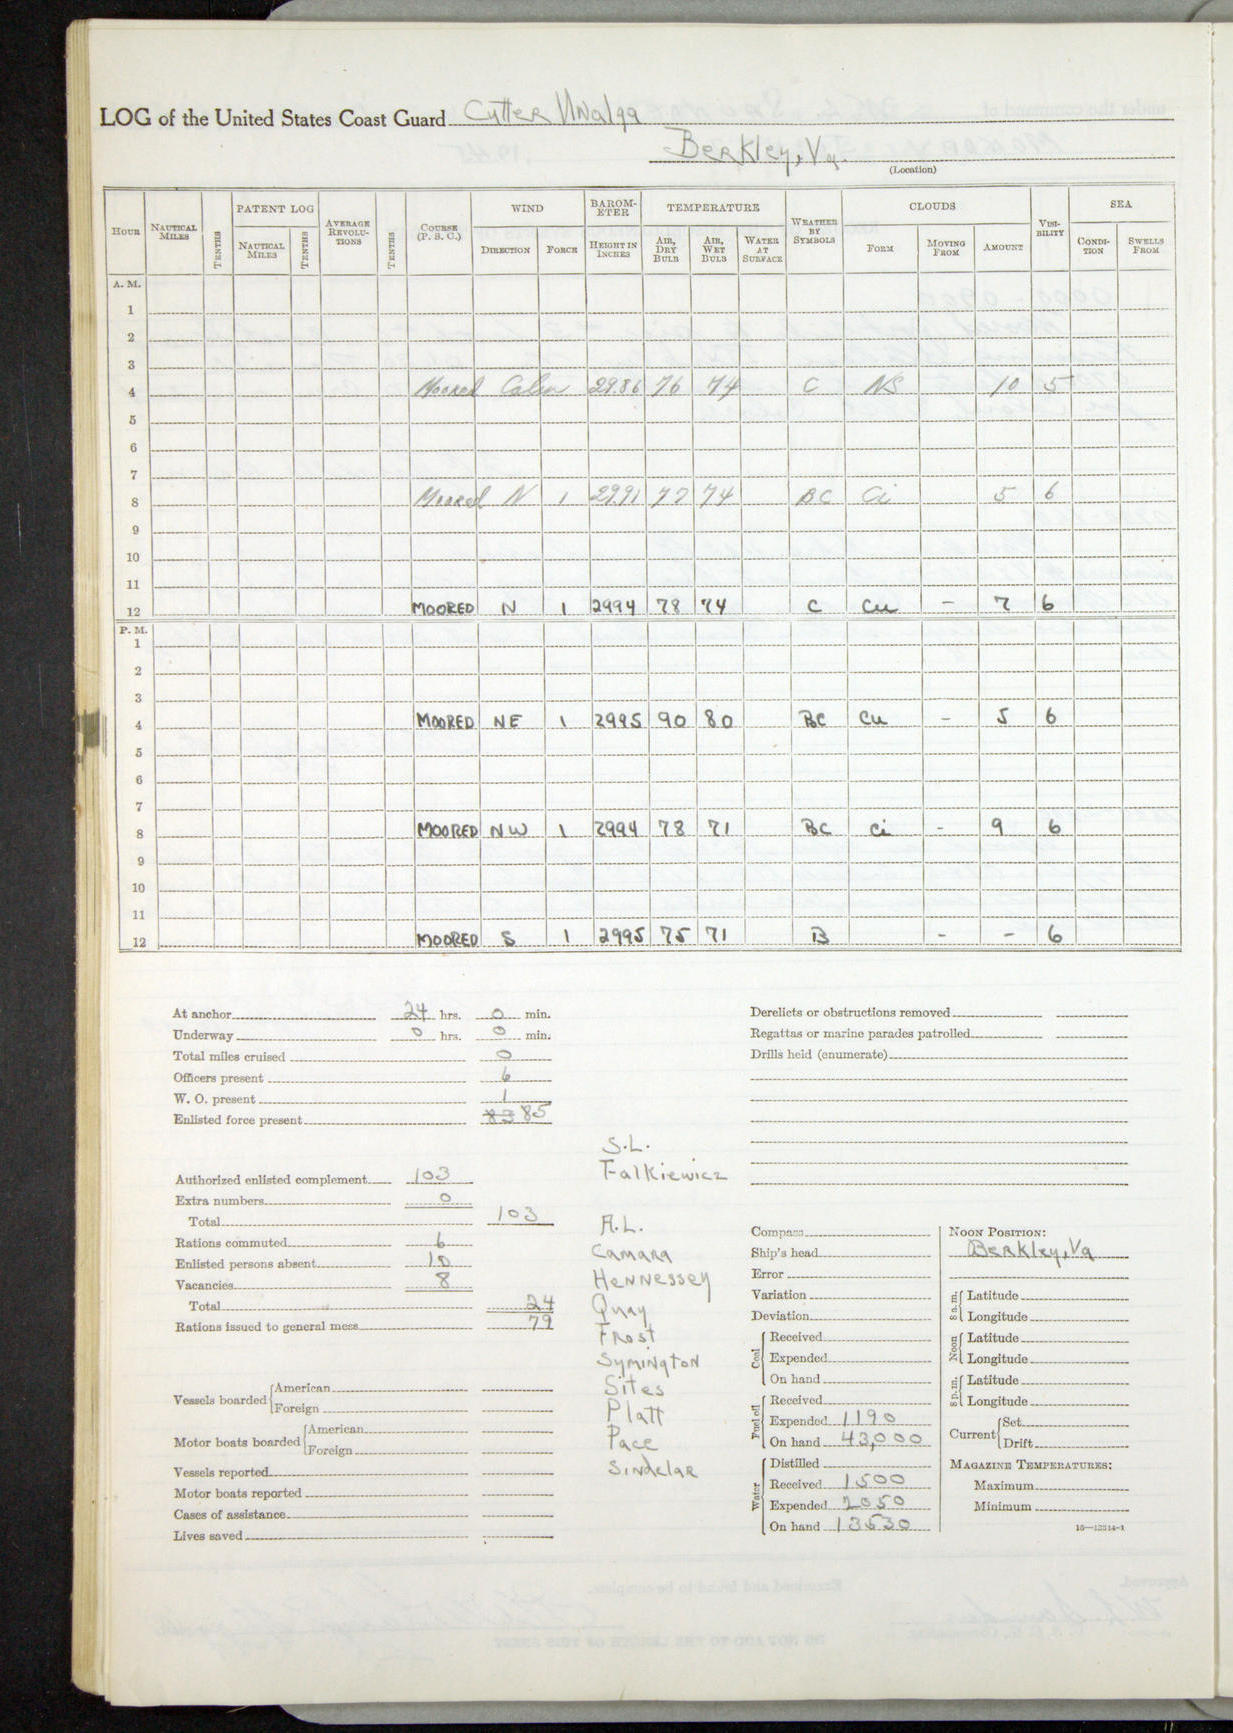 LOG of the United States Coast Guard Cutter Unalga
Berkley, Va.
(Location)
HOUR NAUTICAL MILES TENTHS PATENT LOG NAUTICAL MILES TENTHS AVERAGE REVOLUTIONS TENTHS COURSE (P. S. C.) WIND DIRECTION FORCE BAROMETER HEIGHT IN INCHES TEMPERATURE AIR, DRY BULB AIR, WET BULB WATER AT SURFACE WEATHER BY SYMBOLS CLOUDS FORM MOVING FROM AMOUNT VISIBILITY SEA CONDITION SWELLS FROM
A. M.
1
2
3
4 Moored Calm 2986 76 74 C NS 10 5
5
6
7
8 Moored N 1 2991 77 74 BC Ci 5 6
9
10
11
12 MOORED N 1 2994 78 74 C Cu - 7 6
P. M.
1
2
3
4 MOORED NE 1 2995 90 80 BC Cu - 5 6
5
6
7
8 MOORED NW 1 2994 78 71 BC Ci - 9 6
9
10
11
12 MOORED S 1 2995 75 71 B - - 6
At anchor 24 hrs. 0 min.
Underway 0 hrs. 0 min.
Total miles cruised 0
Officers present 6
W. O. present 1
Enlisted force present 83 85
Authorized enlisted complement 103
Extra numbers 0
Total 103
Rations commuted 6
Enlisted persons absent 10
Vacancies 8
Total 24
Rations issued to general mess 79
Vessels boarded American
Foreign
Motor boats boarded American
Foreign
Vessels reported
Motor boats reported
Cases of assistance
Lives saved
S.L.
Falkiewicz
A.L.
Camara
Hennessey
Quay
Frost
Symington
Sites
Platt
Pace
Sindelar
Derelicts or obstructions removed
Regattas or marine parades patrolled
Drills held (enumerate)
Compass
Ship's head
Error
Variation
Deviation
Coal Received
Expended
On hand
Fuel oil Received
Expended 1190
On hand 43,000
Water Distilled
Received 1500
Expended 2050
On hand 13530
NOON POSITION:
Berkley, Va
8 a. m. Latitude
Longitude
Noon Latitude
Longitude
8 p. m. Latitude
Longitude
Current Set
Drift
MAGAZINE TEMPERATURES:
Maximum
Minimum
16—12314-1